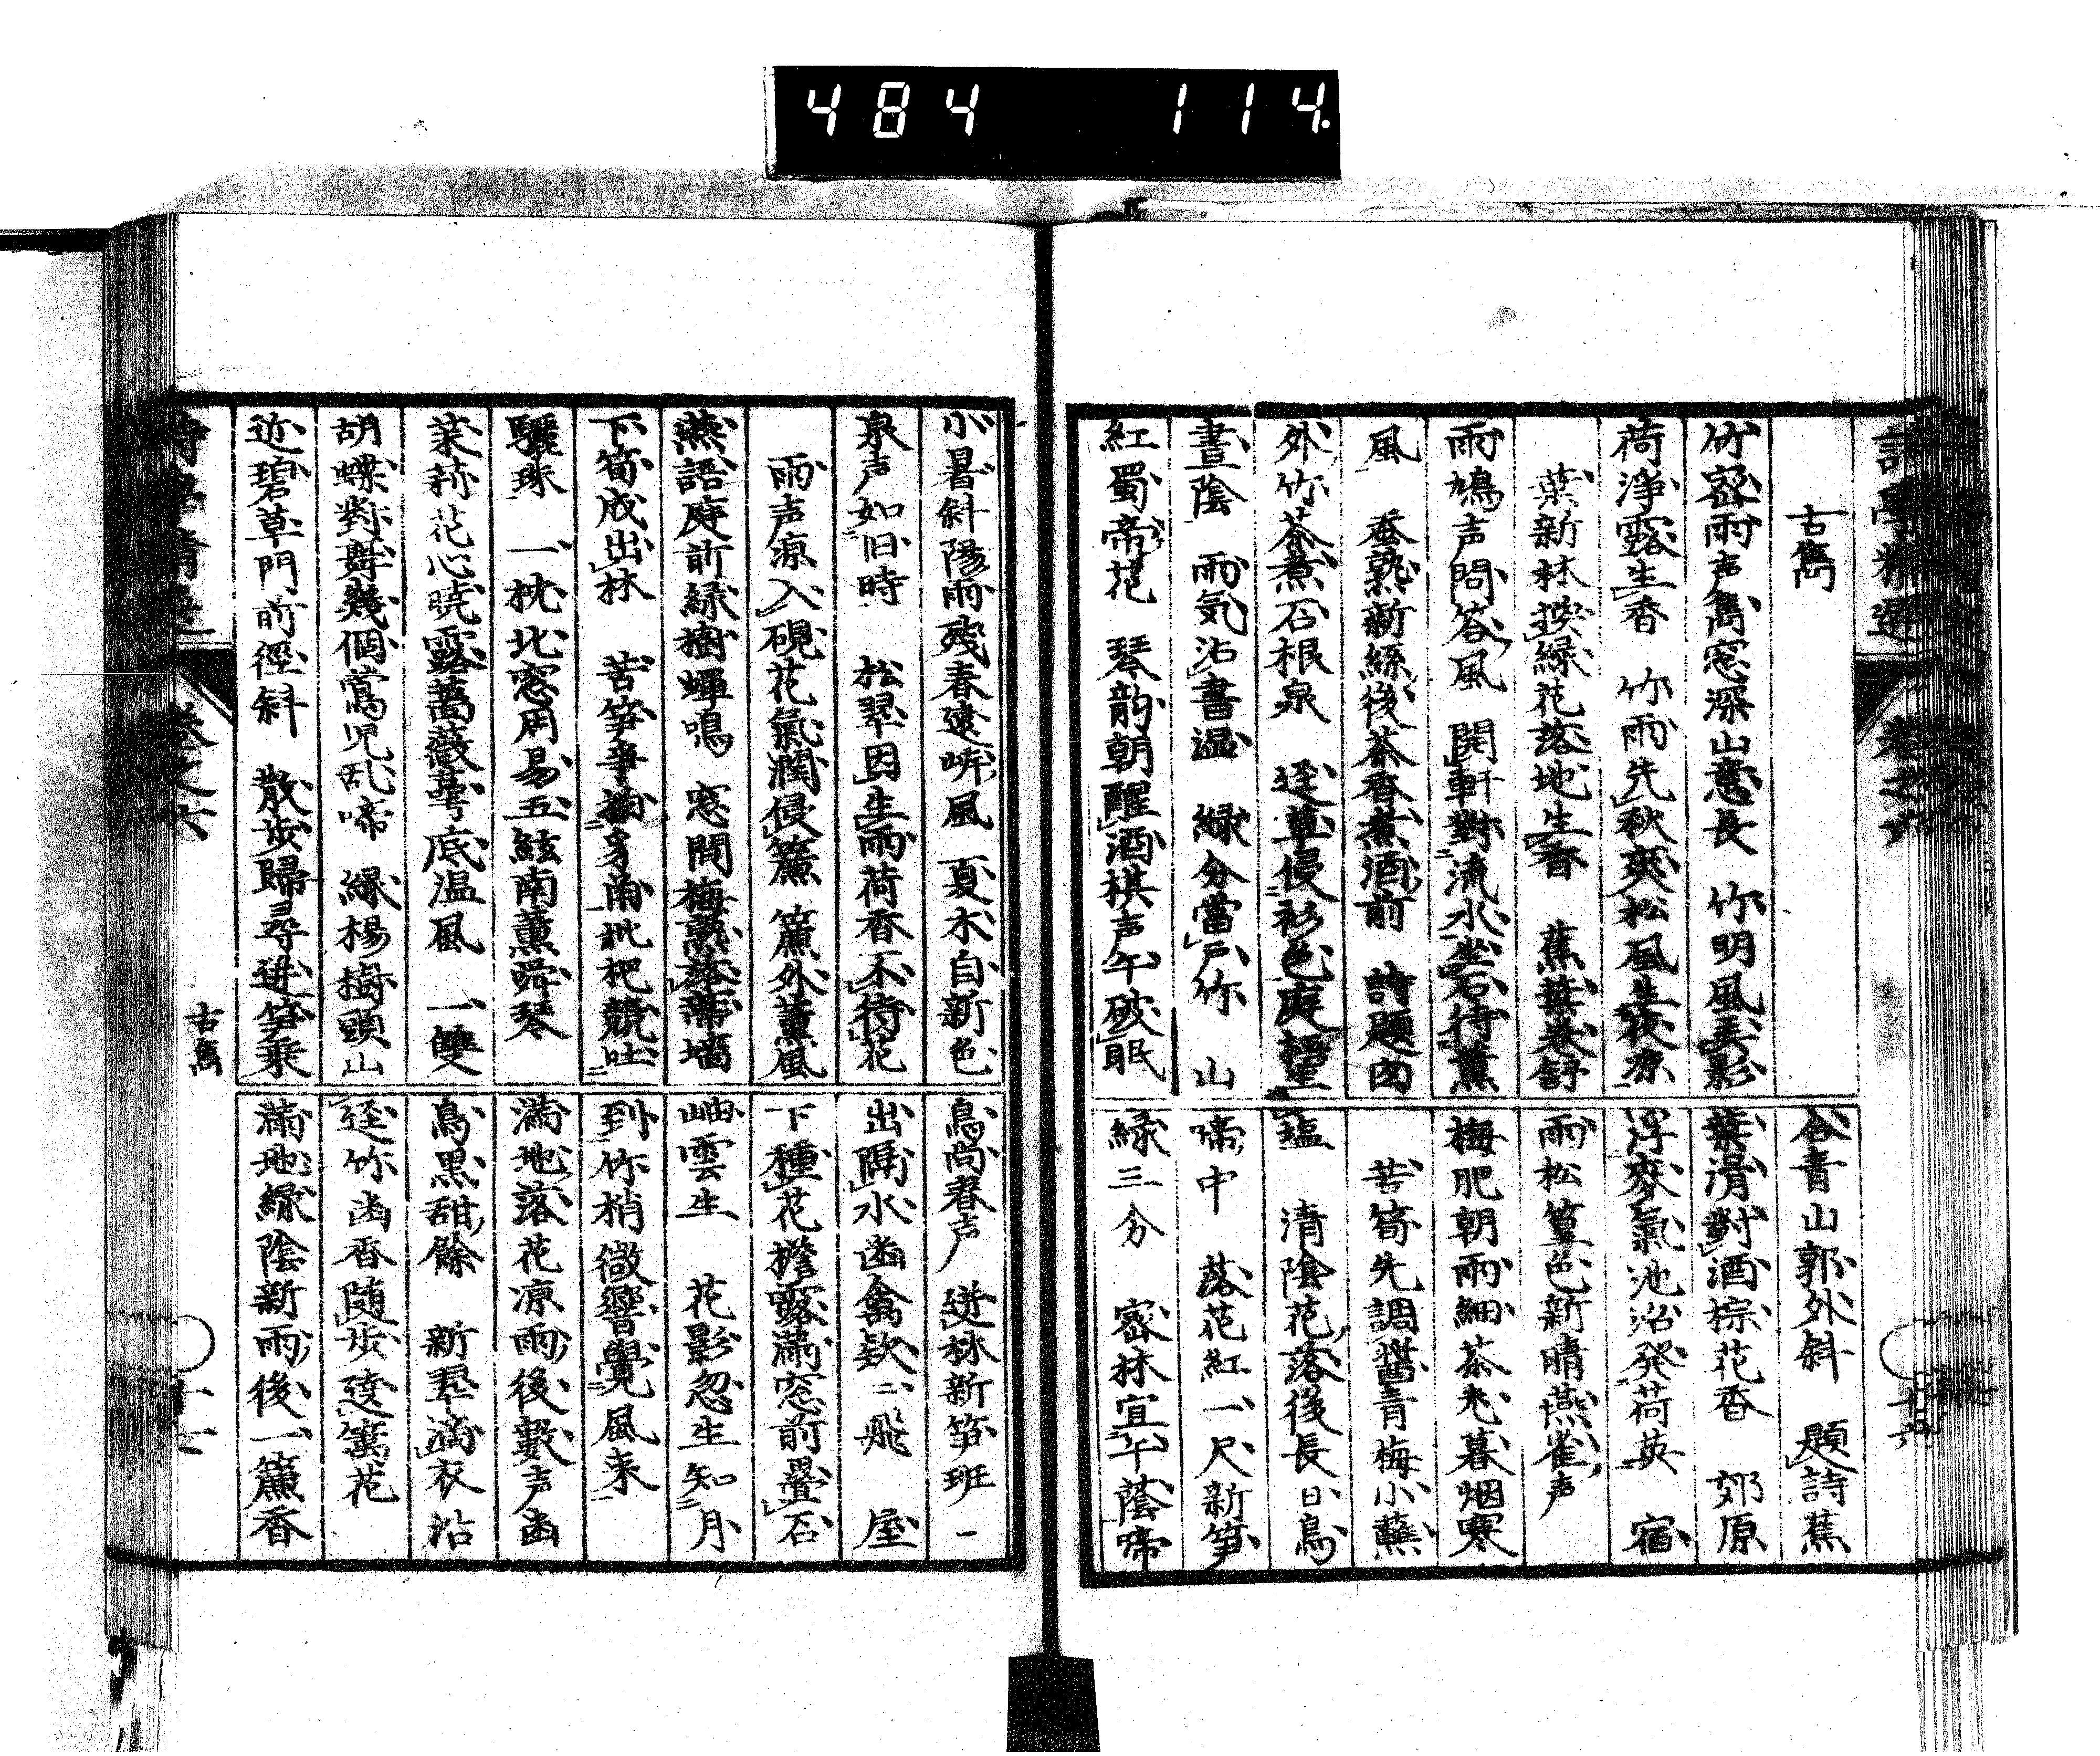 484 114.
古雋
竹密雨声雋窓深山意長 竹明風弄影
荷淨露生香 竹雨先秋爽松風生夜凉
葉新林換緑花落地生香 蕉葉巻舒
雨鳩声問答風 開軒對流水坐石待薫
風 蚕熟新絲後茶香煮酒前 詩題窓
外竹茶煮石根泉 逕草侵衫色庭梧
晝陰 雨気沾書温 緑分當戸竹 山
紅蜀帝花 琴韵朝醒酒棋声午破眠
合青山郭外斜 題詩蕉
葉滑對酒棕花香 郊原
浮麥氣池沼発荷英 宿
雨松篁色新晴燕雀声
梅肥朝雨細茶老暮烟寒
苦筍先調醬青梅小蘸
塩 清陰花落後長日鳥
啼中 落花紅一尺新笋
緑三分 密林宜午蔭啼
小暑斜陽雨殘春遠岍風 夏木自新色
泉声如旧時 松翠因生雨荷香不待花
雨声凉入硯花氣潤侵簾 簾外薫風
燕語庭前緑樹蟬鳴 窓間梅熟落蒂墻
下筍成出林 苦笋爭抽牙甫枇杷競吐
驪珠 一枕北窓周易五絃南薫舜琴
茉莉花心曉露薔薇萼底温風 一雙
胡蝶對舞幾個鶯児乱啼 緑楊樹頭山
近碧草門前徑斜 散歩歸尋迸笋乗
鳥尚春声 迸林新笋班一
出隅水凾禽欵二飛 屋
下種花擔露滿窓前疊石
岫雲生 花影忽生知月
到竹梢微響覺風来
滿地落花凉雨後數声凾
鳥黒甜餘 新翠滴衣沾
逕竹凾香随歩遶籬花
滿地緑陰新雨後一簾香
古雋